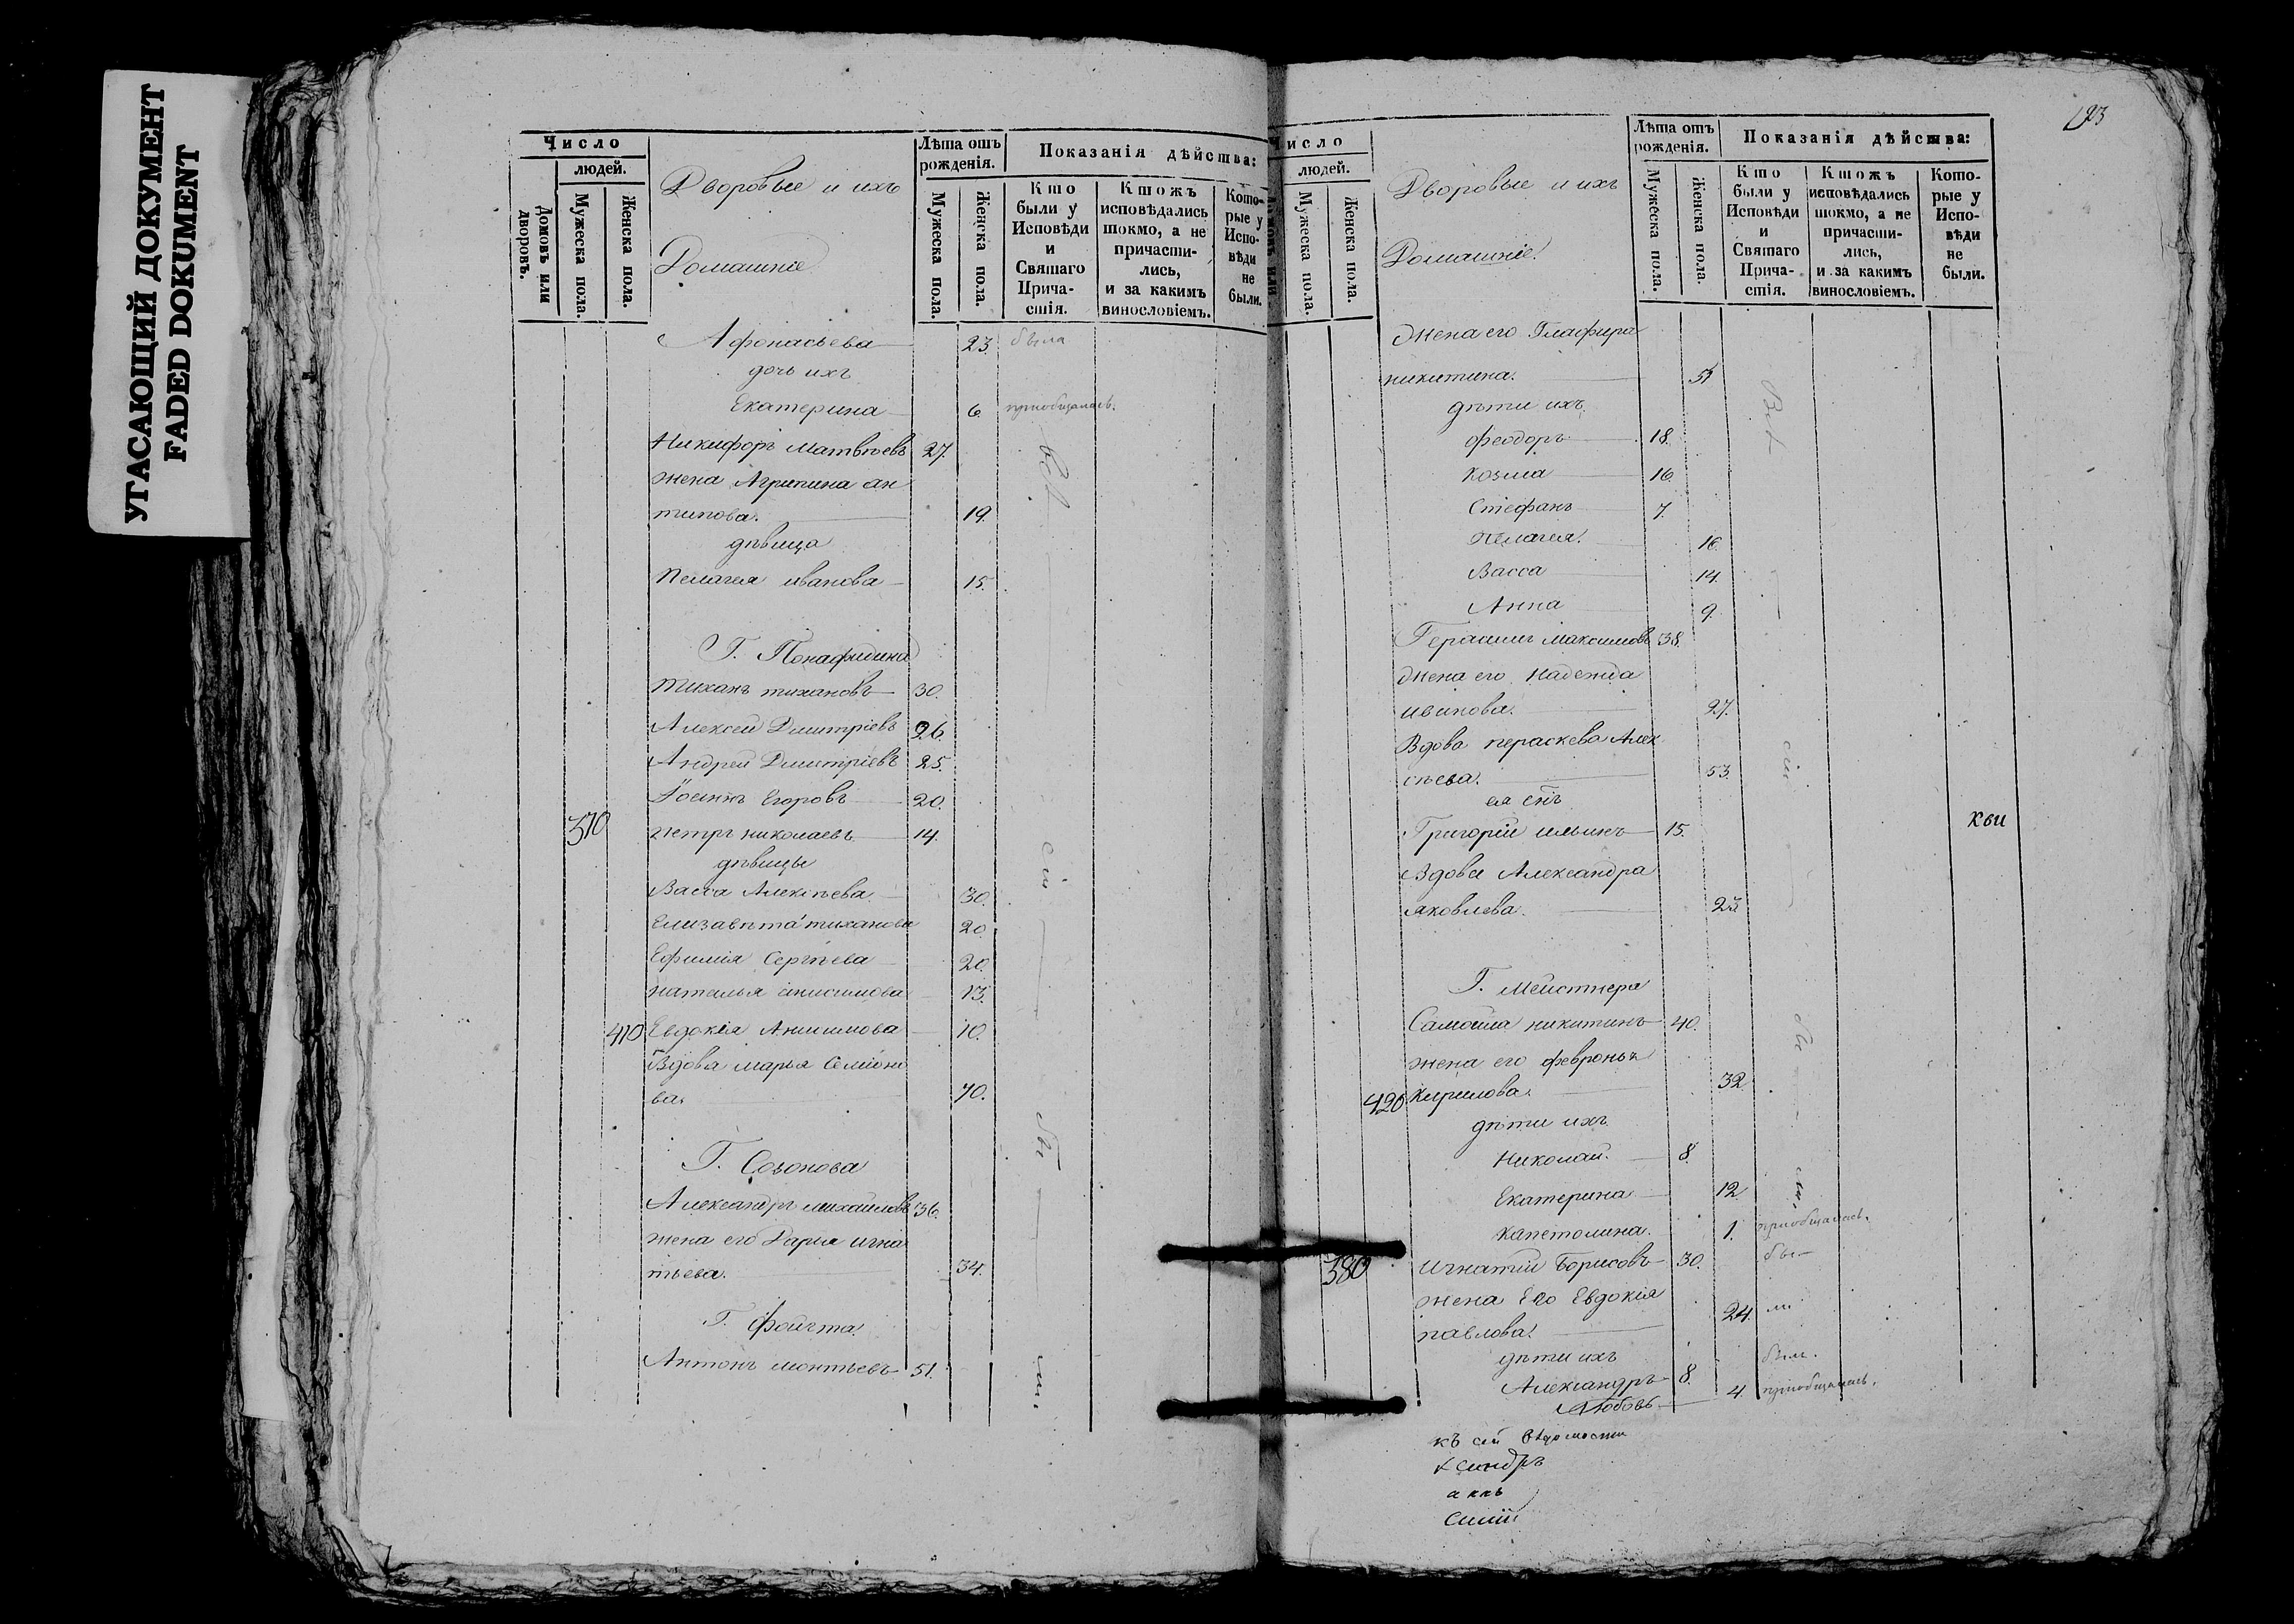 УГАСАЮЩИЙ ДОКУМЕНТ
FADED DOKUMENT
Число
людей.
Домовъ или дворовъ.
Мужеска пола.
Женска пола.
Дворовые и ихъ
Домашніе
Лѣта отъ рожденія.
Мужеска пола.
Женска пола.
Показанія дѣйства:
Кто были у Исповѣди и Святаго Прича-стія.
Ктожъ исповѣдались токмо, а не причасти-лись, и за какимъ винословіемъ.
Кото-рые у Испо-вѣди не были.
Афонасьева 23. была
дочь ихъ
Екатерина 6 приобщалась.
Никифоръ Матвѣевъ 27.
жена Агрипина ан
типова. 19.
дѣвица
Пелагея иванова 15.
Г. Понафидина
тиханъ тихановъ 30.
Алексей Дмитріевъ 26.
Андрей Дмитріевъ 25.
Іоаннъ Егоровъ 20.
370 петръ николаевъ 14.
дѣвицы
Васса Алексѣева 30.
Елизавѣта тиханова 20.
Ефимія Сергѣева 20.
наталья анисимова 13.
410 Евдокія Анисимова 10.
Вдова марья Семіоно
ва. 70.
Г. Созонова
Александръ михайловъ 36.
жена его Дарья игна
тьева. 34.
Г. фойгта.
Антонъ леонтьевъ 51.
193
Число
людей.
Мужеска пола.
Женска пола.
Дворовые и ихъ
Домашніе.
Лѣта отъ рожденія.
Мужеска пола.
Женска пола.
Показанія дѣйства:
Кто были у Исповѣди и Святаго Прича-стія.
Ктожъ исповѣдались токмо, а не причасти-лись, и за какимъ винословіемъ.
Кото-рые у Испо-вѣди не были.
жена его Глафира
никитина.
дѣти ихъ
феодоръ 18.
козма 16.
Стефанъ 7.
пелагея. 16.
Васса 14.
Анна 9.
Герасимъ максимовъ 38.
жена его надежда
иванова. 27.
Вдова пераскева Алек
сѣева. 53
ея снъ
Григорій ильинъ 15.
Вдова Александра
яковлева. 23
Г. Мейстнера
Самойла никитинъ 40.
жена его февронья
420 кирилова. 32
дѣти ихъ
Николай. 8.
Екатерина 12
капетолина. 1. приобщалась.
380 игнатій Борисовъ 30.
жена Его Евдокія
павлова. 24.
дѣти ихъ
Александръ 8.
Любовь 4 приобщалась.
къ сей вѣдомости